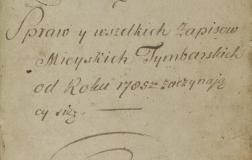 Spraw y wszelkich Zapisow
Mieyskich Tymbarskich
od Roku 1705 zaczynają
cy się